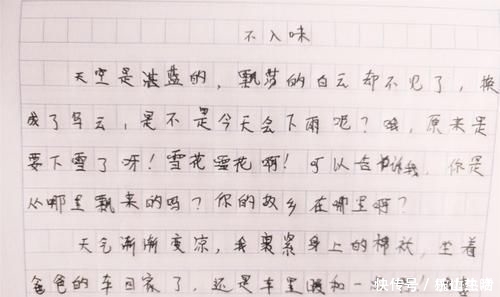 不入味
天空是湛蓝的，飘荡的白云却不见了，换
成了乌云，是不是今天会下雨呢？哦，原来是
要下雪了呀！雪花雪花啊！可以告诉我，你是
从哪里飘来的吗？你的故乡在哪里啊？
天气渐渐变凉，我裹紧身上的棉袄，坐着
爸爸的车回家了，还是车里暖和一
快传号/